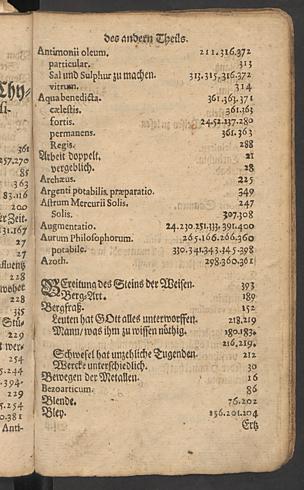 des andern Theils.
Antimonii oleum. 211.316.372
particular. 313
Sal und Sulphur zu machen. 313.315.316.372
vitrum. 314
Aqua benedicta. 361.363.371
cælestis. 361.363
fortis. 24.52.137.280
permanens. 361.363
Regis. 288
Arbeit doppelt. 21
vergeblich. 28
Archæus. 225
Argenti potabilis, præparatio. 349
Astrum Mercurii Solis. 247
Solis. 307.308
Augmentatio. 24.230.251.333.391.400
Aurum Philosophorum. 265.166.266.360
potabile. 330.341.343.345.398
Azoth. 298.360.361
BEreitung des Steins der Weisen. 393
Berg-Art. 189
Bergfraß. 152
Leuten hat GOtt alles unterworffen. 218.219
Mann/ was ihm zu wissen nöthig. 180.183.
216.219.
Schwefel hat unzehliche Tugenden. 212
Wercke unterschiedlich. 30
Bewegen der Metallen. 16
Bezoarticum. 86
Blende. 76.202
Bley. 156.201.204
Ertz